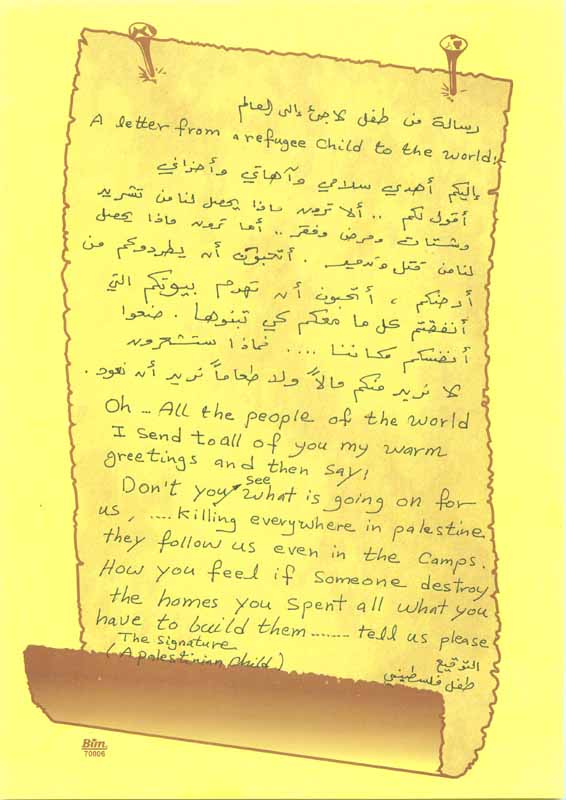 رسالة من طفل لاجئ إلى العالم
A letter from a refugee child to the world!
إليكم أهدي سلامي وآهاتي وأحزاني
أقول لكم .. ألا ترون ماذا يحصل لنا من تشريد
وشتات ومرض وفقر .. أما ترون ماذا يحصل
لنا من قتل وتدمير . أتحبون أن يطردوكم من
أرضكم ، أتحبون أن تهدم بيوتكم التي
أنفقتم كل ما معكم كي تبنوها . ضعوا
أنفسكم مكاننا .... فماذا ستشعرون
لا نريد منكم مالاً ولا طعاماً نريد أن نعود .
Oh ... All the people of the world
I send to all of you my warm
greetings and then say!
Don't you see what is going on for
us, .... killing everywhere in palestine
they follow us even in the camps.
How you feel if someone destroy
the homes you spent all what you
have to build them ....... tell us please
The signature
(A palestinian child)
التوقيع
طفل فلسطيني
Bim
70006